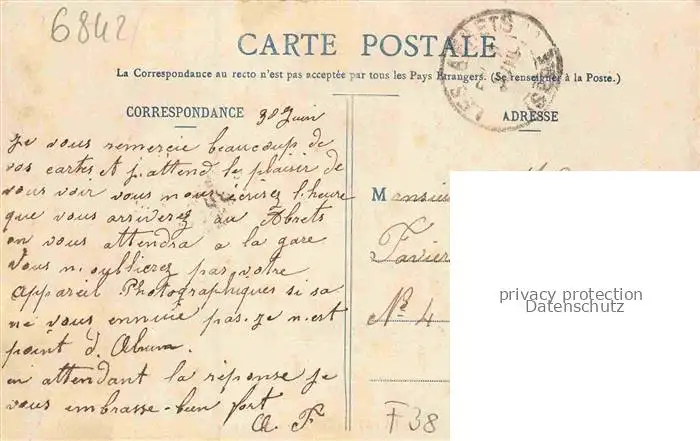 6842
CARTE POSTALE
La Correspondance au recto n'est pas acceptée par tous les Pays Etrangers. (Se renseigner à la Poste.)
CORRESPONDANCE
ADRESSE
30 Juin
Je vous remercie beaucoup de
vos cartes et j. attend le plaisir de
vous voir vous nous écrirez l'heure
que vous arriverez au Abrets
on vous attendra a la gare
Vous n. oublierez pas votre
appareil Photographiques si sa
ne vous ennuie pas. Je n. est
point d. Album.
en attendant la réponse je
vous embrasse bien fort
A. F
Monsieu
Favier
N° 4
F 38
LES ABRETS
privacy protection
Datenschutz